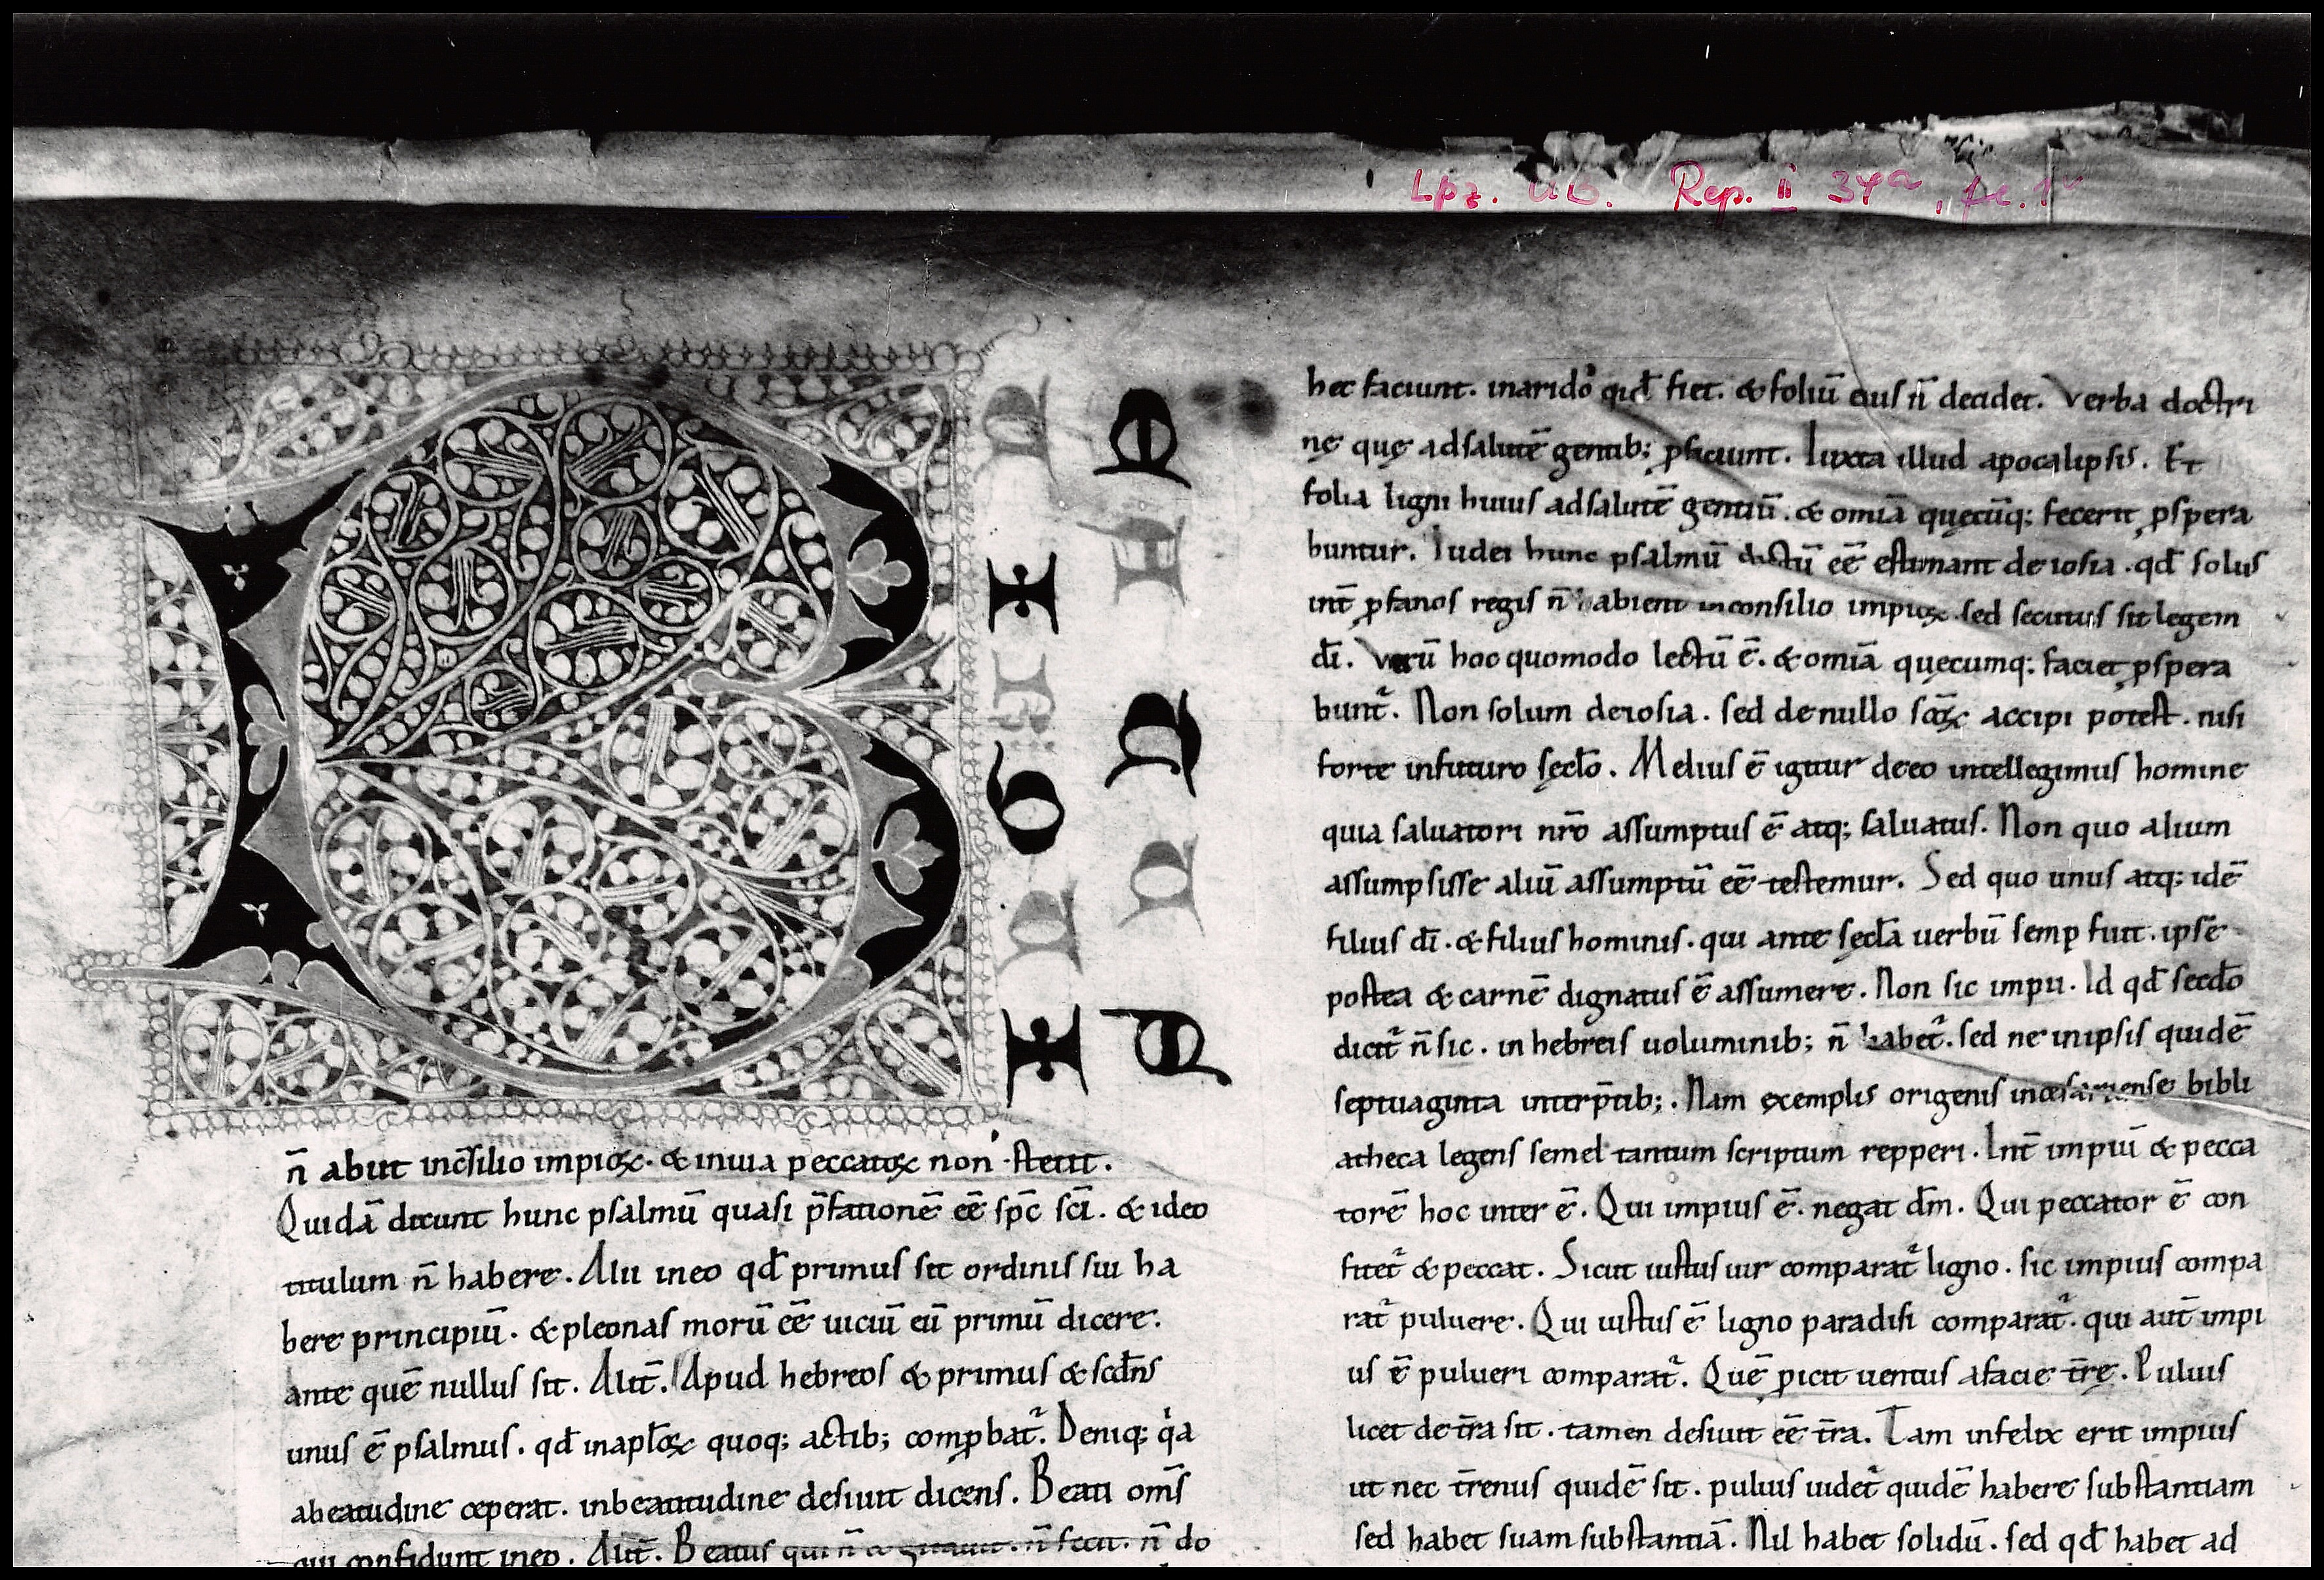 Lpz. UB. Rep. II 34a, fc. 1v
B
n̄ abiit inc̄silio impioꝝ. & inuia peccatoꝝ non stetit.
Quidā dicunt hunc psalmū quasi p̄fationē eē sp̄c sc̄i. & ideo
titulum n̄ habere. Alii ineo qđ primus sit ordinis sui ha
bere principiū. & pleonas morū eē uiciū eū primū dicere.
ante quē nullus sit. Alit̄. Apud hebreos & primus & scđns
unus ē psalmus. qđ inapl̄oꝝ quoq; actib; comꝓbat᷑. Deniq; q͛a
abeatudine ceperat. inbeatitudine desiuit dicens. Beati om̄s
qui confidunt ineo. Alit̄. Beatus qui n̄ cogitauit. n̄ fecit. n̄ do
hec faciunt. inarido qid fiet. & foliū eius n̄ decidet. Verba doctri
nę quę adsalutē gentib; ꝓficiunt. Iuxta illud apocalipsis. Et
folia ligni huius adsalutē gentiū. & omīa quecūq; fecerit ꝓspera
buntur. Iudei hunc psalmū dictū eē estimant de iosia. qđ solus
int̄ ꝓfanos regis n̄ abient inconsilio impioꝝ. sed secutus sit legem
dī. Verū hoc quomodo lectū ē. & omīa quęcumq; faciet ꝓspera
bunt᷑. Non solum deiosia. sed denullo sc̄oꝝ accipi potest. nisi
forte infuturo sęclo. Melius ē igitur deeo intellegimus homine
quia saluatori nr̄o assumptus ē atq; saluatus. Non quo alium
assumpsisse aliū assumptū eē testemur. Sed quo unus atq; idē
filius dī. & filius hominis. qui ante sęcła uerbū semp fuit. ipse
postea & carnē dignatus ē assumere. Non sic impii. Id qđ secđo
dicit᷑ n̄ sic. in hebreis uoluminib; n̄ habet᷑. sed ne inipsis quidē
septuaginta interp̄tib;. Nam exemplis origenis incesariense bibli
atheca legens semel tantum scriptum repperi. Int̄ impiū & pecca
torē hoc inter ē. Qui impius ē. negat dm̄. Qui peccator ē con
fitet᷑ & peccat. Sicut iustus uir comparat᷑ ligno. sic impius compa
rat᷑ puluere. Qui iustus ē ligno paradisi comparat᷑. qui aut̄ impi
us ē pulueri comparat᷑. Quē ꝓicit uentus afacie tr̄ę. Puluis
licet de tr̄a sit. tamen desiuit eē tr̄a. Tam infelix erit impius
ut nec tr̄enus quidē sit. puluis uidet᷑ quidē habere substantiam
sed habet suam substantiā. Nil habet solidū. sed qđ habet ad